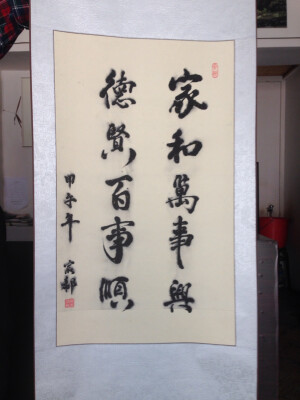 家和萬事興
德賢百事順
甲午年